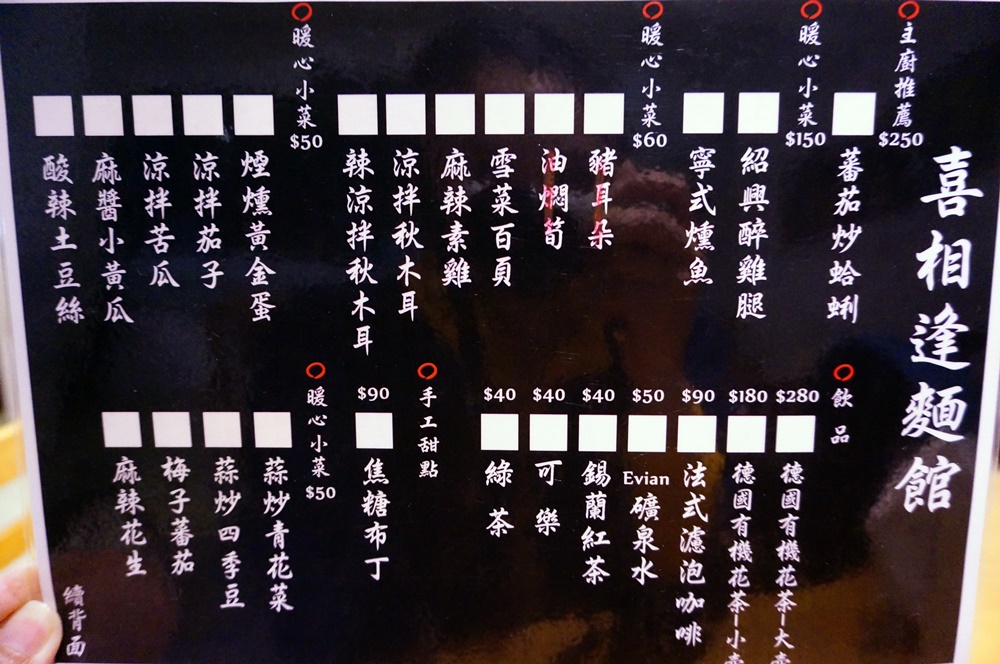 喜相逢麵館
主廚推薦
$250
蕃茄炒蛤蜊
暖心小菜
$150
紹興醉雞腿
寧式燻魚
暖心小菜
$60
豬耳朵
油燜筍
雪菜百頁
麻辣素雞
涼拌秋木耳
辣涼拌秋木耳
暖心小菜
$50
煙燻黃金蛋
涼拌茄子
涼拌苦瓜
麻醬小黃瓜
酸辣土豆絲
飲品
$280
德國有機花茶-大壺
$180
德國有機花茶-小壺
$90
法式濾泡咖啡
$50
Evian 礦泉水
$40
錫蘭紅茶
$40
可樂
$40
綠茶
手工甜點
$90
焦糖布丁
暖心小菜
$50
蒜炒青花菜
蒜炒四季豆
梅子蕃茄
麻辣花生
續背面